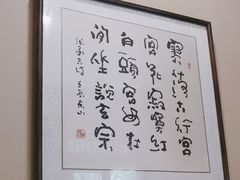 寥落古行宮
宮花寂寞紅
白頭宮女在
閒坐說玄宗